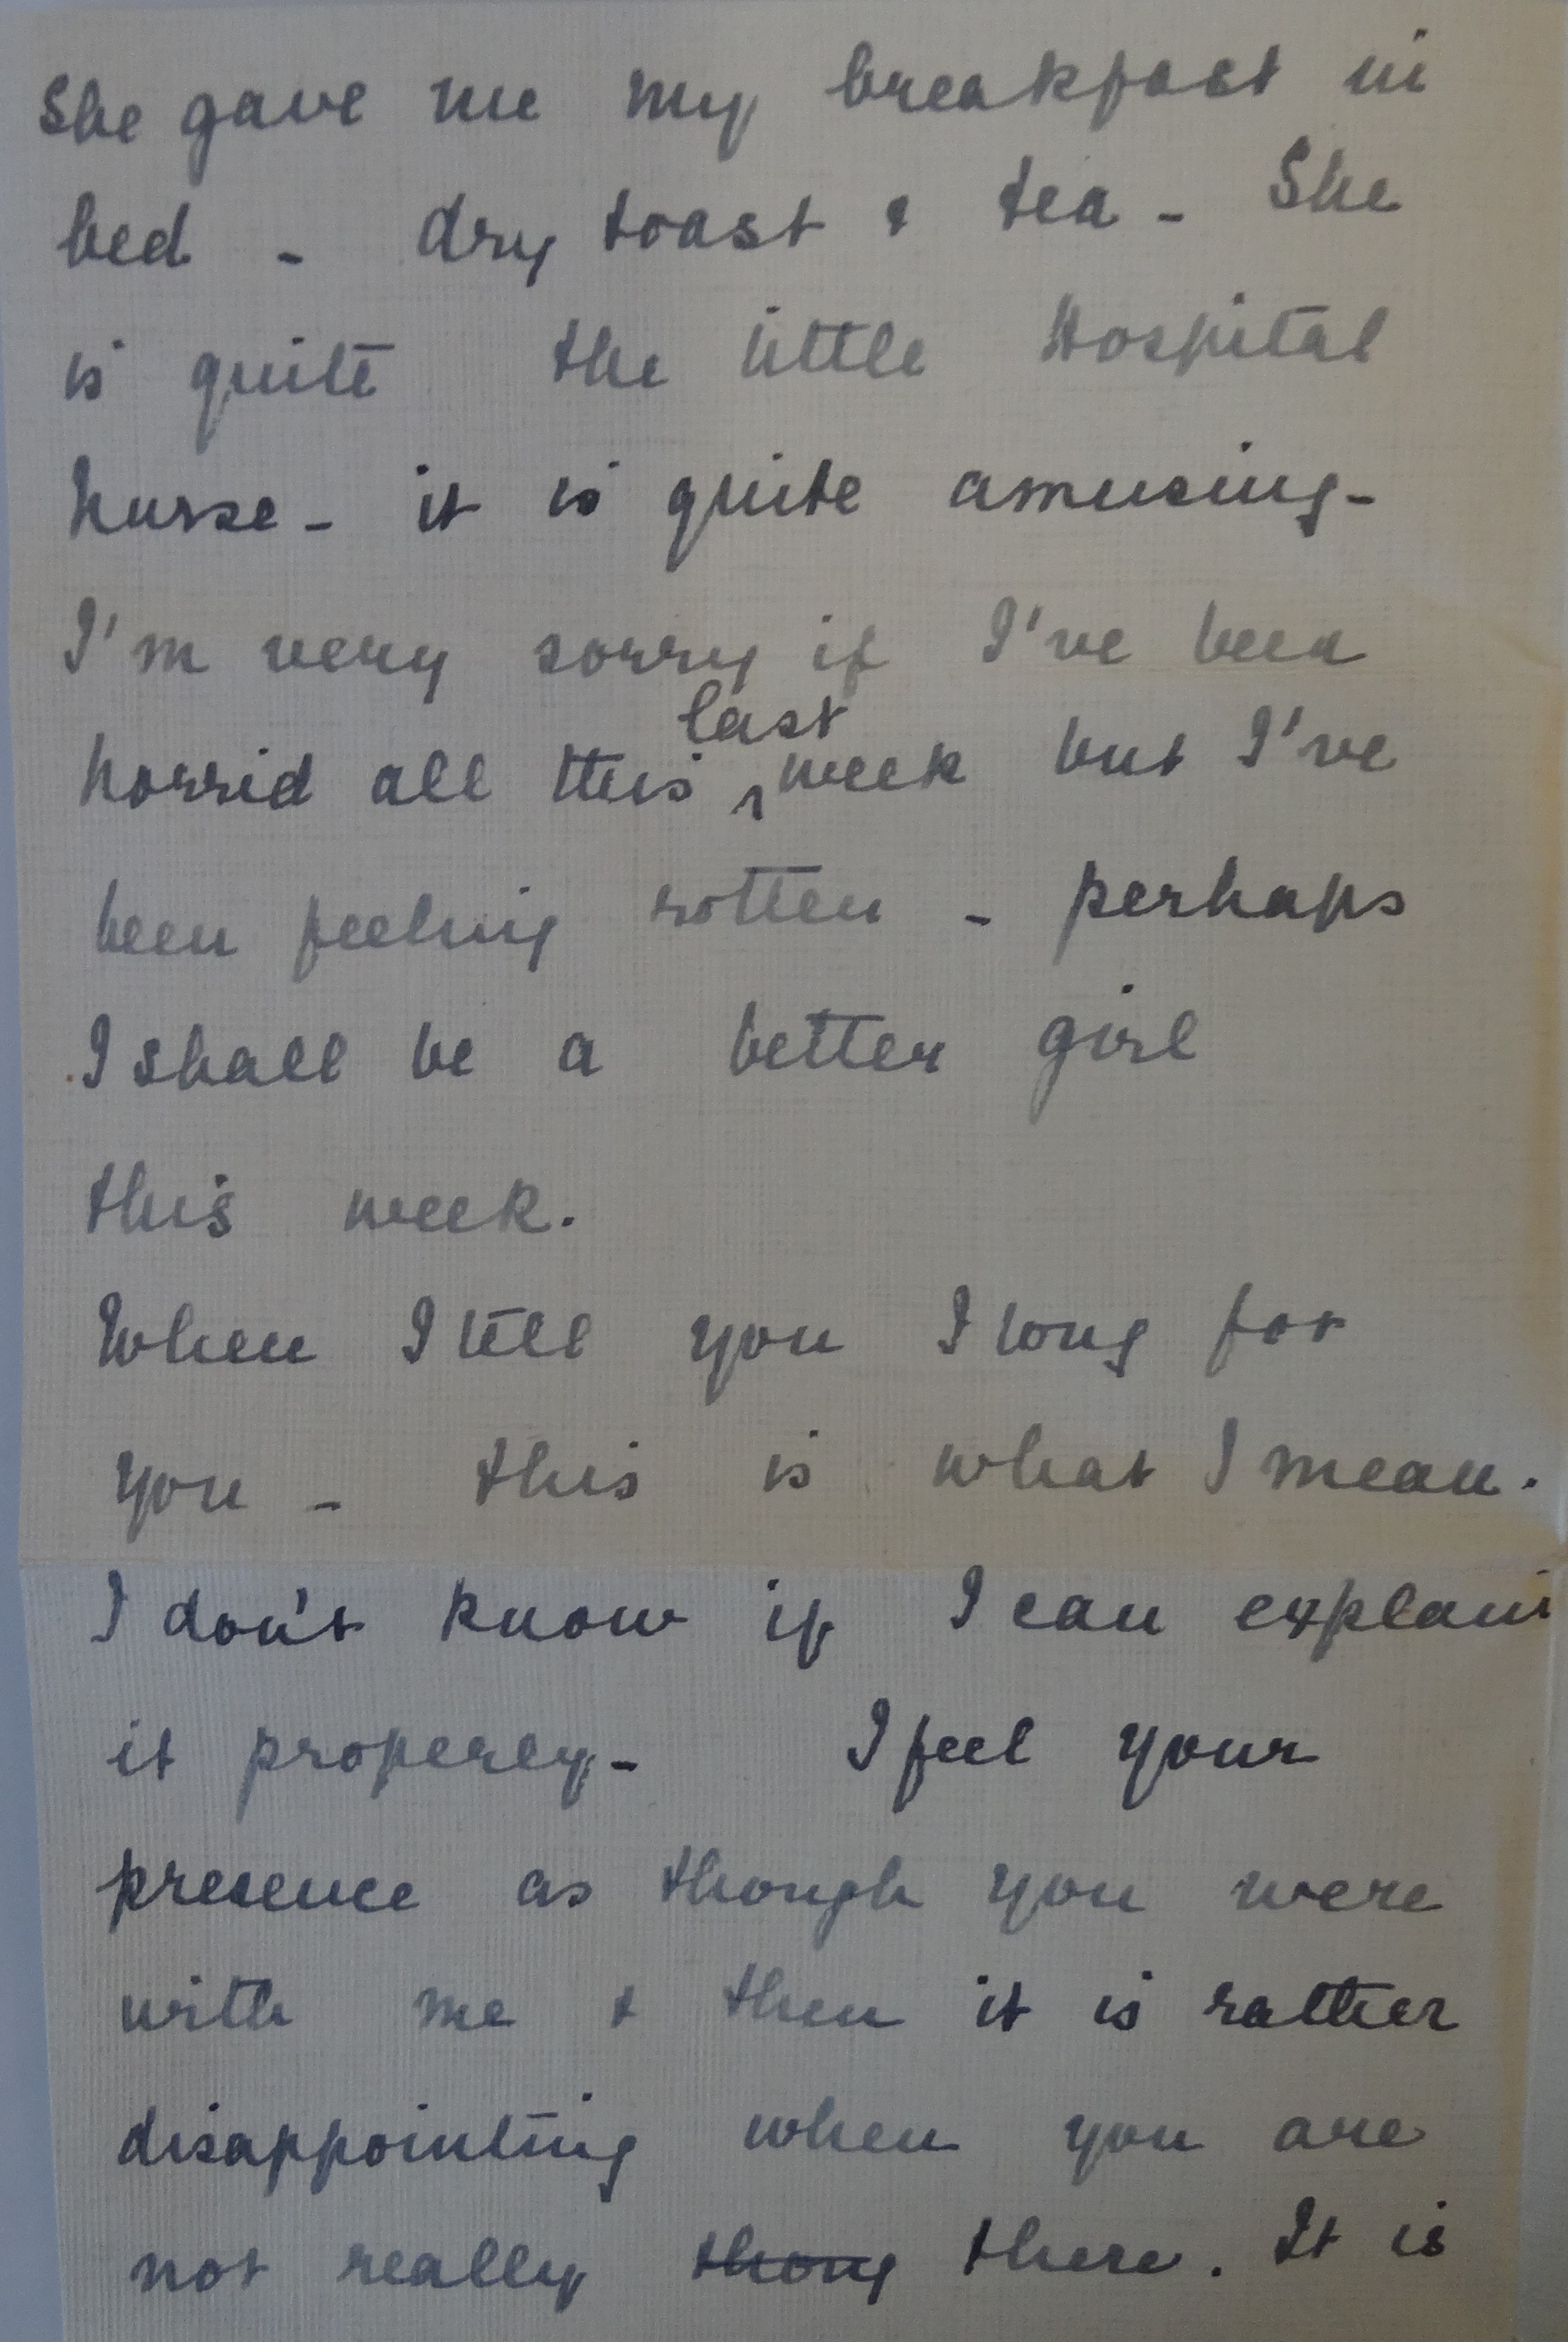 She gave me my breakfast in
bed - dry toast & tea - She
is quite the little Hospital
nurse - it is quite amusing -
I'm very sorry if I've been
last
horrid all this ‸ week but I've
been feeling rotten - perhaps
I shall be a better girl
this week.
When I tell you I long for
you - this is what I mean.
I don't know if I can explain
it properly - I feel your
presence as though you were
with me & then it is rather
disappointing when you are
not really thoug there. It is